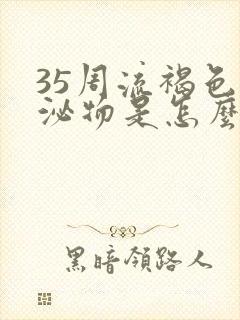 35周流褐色
泌物是怎麼
黑暗領路人